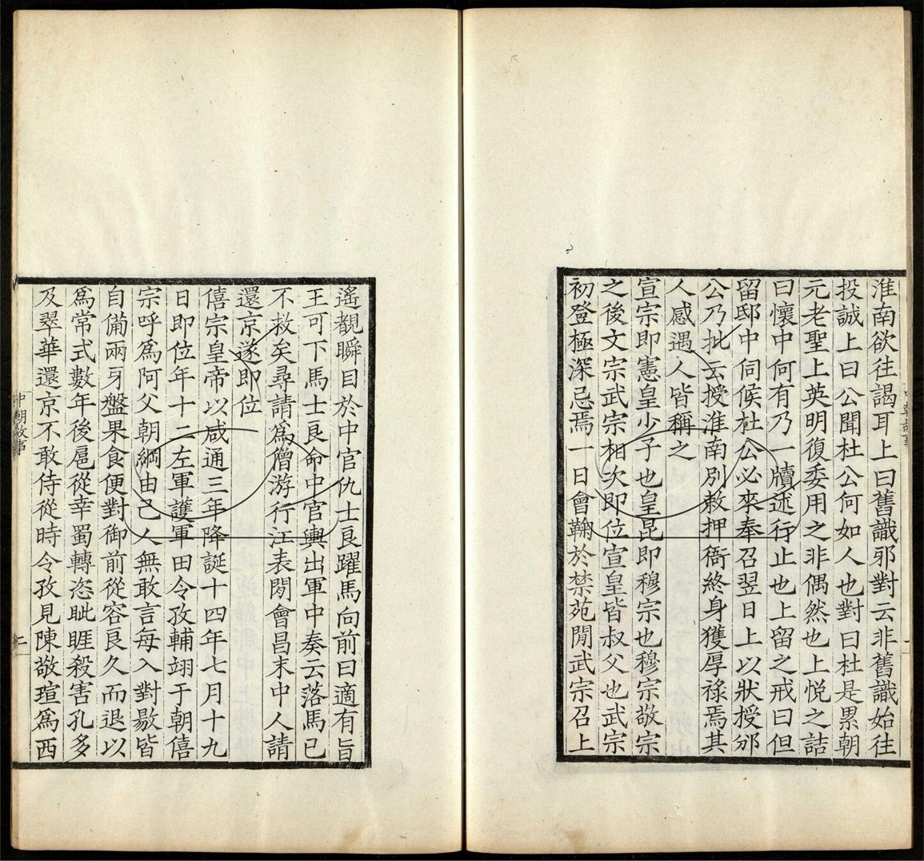 淮南欲往謁耳上曰舊識邪對云非舊識始往
投誠上曰公聞杜公何如人也對曰杜是累朝
元老聖上英明復委用之非偶然也上悅之詰
曰懷中何有乃一牘述行止也上留之戒曰但
留邸中伺候杜公必來奉召翌日上以狀授邠
公乃批云授淮南別敕押衙終身獲厚祿焉其
人感遇人皆稱之
宣宗即憲皇少子也皇昆即穆宗也穆宗敬宗
之後文宗武宗相次即位宣皇皆叔父也武宗
初登極深忌焉一日會鞠於禁苑間武宗召上
遙覩瞬目於中官仇士良躍馬向前曰適有旨
王可下馬士良命中官輿出軍中奏云落馬已
不救矣尋請爲僧游行江表間會昌末中人請
還京遂即位
僖宗皇帝以咸通三年降誕十四年七月十九
日即位年十二左軍護軍田令孜輔翊于朝僖
宗呼爲阿父朝綱由己人無敢言每入對敭皆
自備兩牙盤果食便對御前從容良久而退以
爲常式數年後扈從幸蜀轉恣眦睚殺害孔多
及翠華還京不敢侍從時令孜見陳敬瑄爲西
中朝故事
二